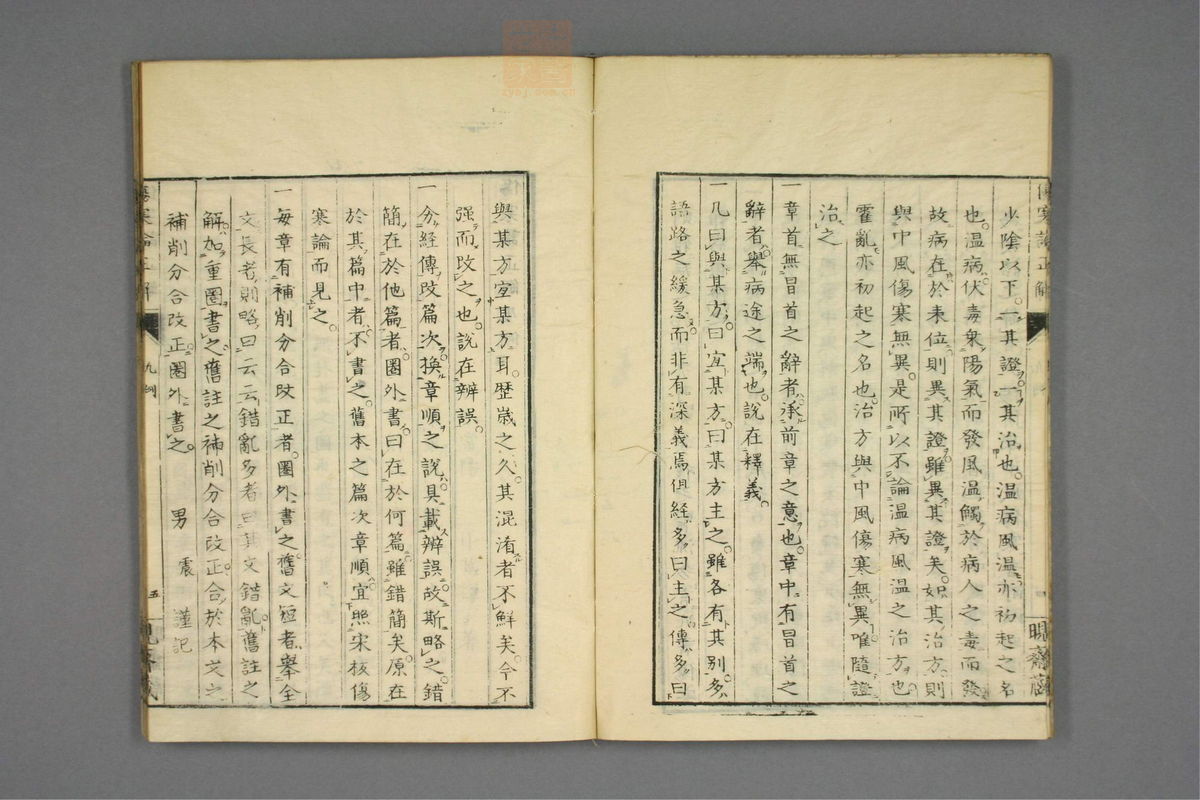 少陰以下。一其證一其治也。温病風温亦初起之名
也。温病伏毒衆陽氣而發風温觸於病人之毒而發
故病在於未位則異其證雖異其證矣。如其治方則
與中風傷寒無異。是所以不論温病風温之治方也
霍亂亦初起之名也。治方與中風傷寒無異唯隨證
治之
一章首無冒首之辭者承前章之意也。章中有冒首之
辭者擧病途之端也。説在釋義。
一凡曰與某方。曰宜某方。曰某方主之。雖各有其別多
語路之緩急而非有深義焉。但經多曰主之傳多曰
傷寒論正解
凡例
晛齋藏
與某方宜某方耳。歴歳之久其混淆者不鮮矣。今不
强而改之也。説在辨誤。
一分經傳改篇次換章順之説具載辨誤。故斯略之。錯
簡在於他篇者圏外書曰在於何篇。雖錯簡矣。原在
於其篇中者不書之。舊本之篇次章順宜照宋板傷
寒論而見之。
一毎章有補削分合改正者。圏外書之舊文短者擧全
文長者則略曰云云錯亂多者曰其文錯亂舊註之
解加重圏書之。舊註之補削分合改正。合於本文之
補削分合改正圏外書之。
男 震 謹記
傷寒論正解
凡例
五
晛齋藏